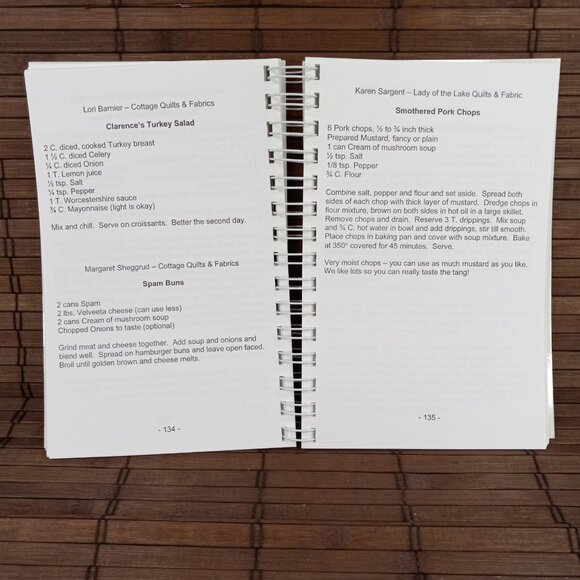 Lori Barnier – Cottage Quilts & Fabrics
Clarence's Turkey Salad
2 C. diced, cooked Turkey breast
1 ½ C. diced Celery
¼ C. diced Onion
1 T. Lemon juice
½ tsp. Salt
¼ tsp. Pepper
1 T. Worcestershire sauce
¾ C. Mayonnaise (light is okay)
Mix and chill. Serve on croissants. Better the second day.
Margaret Sheggrud – Cottage Quilts & Fabrics
Spam Buns
2 cans Spam
2 lbs. Velveeta cheese (can use less)
2 cans Cream of mushroom soup
Chopped Onions to taste (optional)
Grind meat and cheese together. Add soup and onions and
blend well. Spread on hamburger buns and leave open faced.
Broil until golden brown and cheese melts.
- 134 -
Karen Sargent – Lady of the Lake Quilts & Fabric
Smothered Pork Chops
6 Pork chops, ½ to ¾ inch thick
Prepared Mustard, fancy or plain
1 can Cream of mushroom soup
½ tsp. Salt
1/8 tsp. Pepper
¾ C. Flour
Combine salt, pepper and flour and set aside. Spread both
sides of each chop with thick layer of mustard. Dredge chops in
flour mixture, brown on both sides in hot oil in a large skillet.
Remove chops and drain. Reserve 3 T. drippings. Mix soup
and ¾ C. hot water in bowl and add drippings, stir till smooth.
Place chops in baking pan and cover with soup mixture. Bake
at 350° covered for 45 minutes. Serve.
Very moist chops – you can use as much mustard as you like.
We like lots so you can really taste the tang!
- 135 -